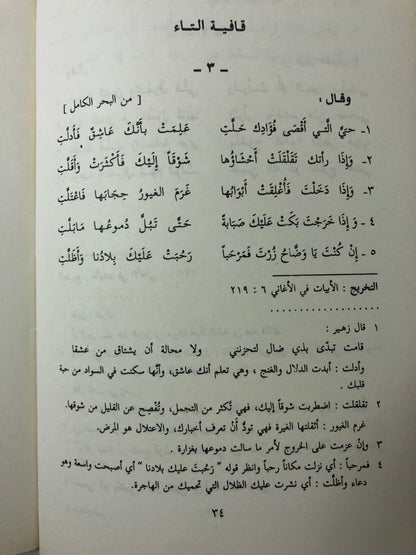 قافية التاء
- ٣ -
وقال : [ من البحر الكامل ]
١- حَيِّ الَّتي أَقْصَى فُؤَادِكَ حَلَّتِ عَلِمَتْ بأَنَّكَ عَاشِقٌ فَأَدلَّتِ
٢- وَإِذَا رأتك تَقَلْقَلَتْ أَحْشَاؤُها شَوْقاً إِلَيْكَ فَأَكْثَرَتْ وَأَقَلَّتِ
٣- وَإِذَا دَخَلْتَ فَأُغْلِقَتْ أَبْوَابُها غَرَمَ الغيورُ حِجَابَها فَاعْتَلَّتِ
٤- وَإِذَا خَرَجْتَ بَكَتْ عَلَيْكَ صَبَابَةً حَتَّى تَبُلَّ دُموعُها مَابَلَّتِ
٥- إِنْ كُنْتَ يَا وَضَّاحُ زُرْتَ فَمَرْحَباً رَحُبَتْ عَلَيْكَ بِلادُنا وَأَظَلَّتِ
التخريج : الأبيات في الأغاني ٦ : ٢١٩
١ قال زهير :
قامت تبدّى بذي ضال لتحزنني ولا محالة أن يشتاق من عشقا
وأدلت : أبدت الدلال والغنج ، وهي تعلم أنك عاشق، وأنّها سكنت في السواد من حبة
قلبك .
٢ تقلقلت : اضطربت شوقاً إليك، فهي تُكثر من التجمل، وتُفْصِح عن القليل من شوقها.
غرم الغيور : أثقلتها الغيرة فهي تودُّ أنْ تعرف أخبارك، والاعتلال هو المرض.
٣ وإنْ عزمت على الخروج لأمر ما سالت دموعها بغزارة .
٤ فمرحباً : أي نزلت مكاناً رحباً وانظر قوله " رَحُبتَ عليك بلادنا " أي أصبحت واسعة وهو
دعاء وأظلّت : أي نشرت عليك الظلال التي تحميك من الهاجرة.
٣٤